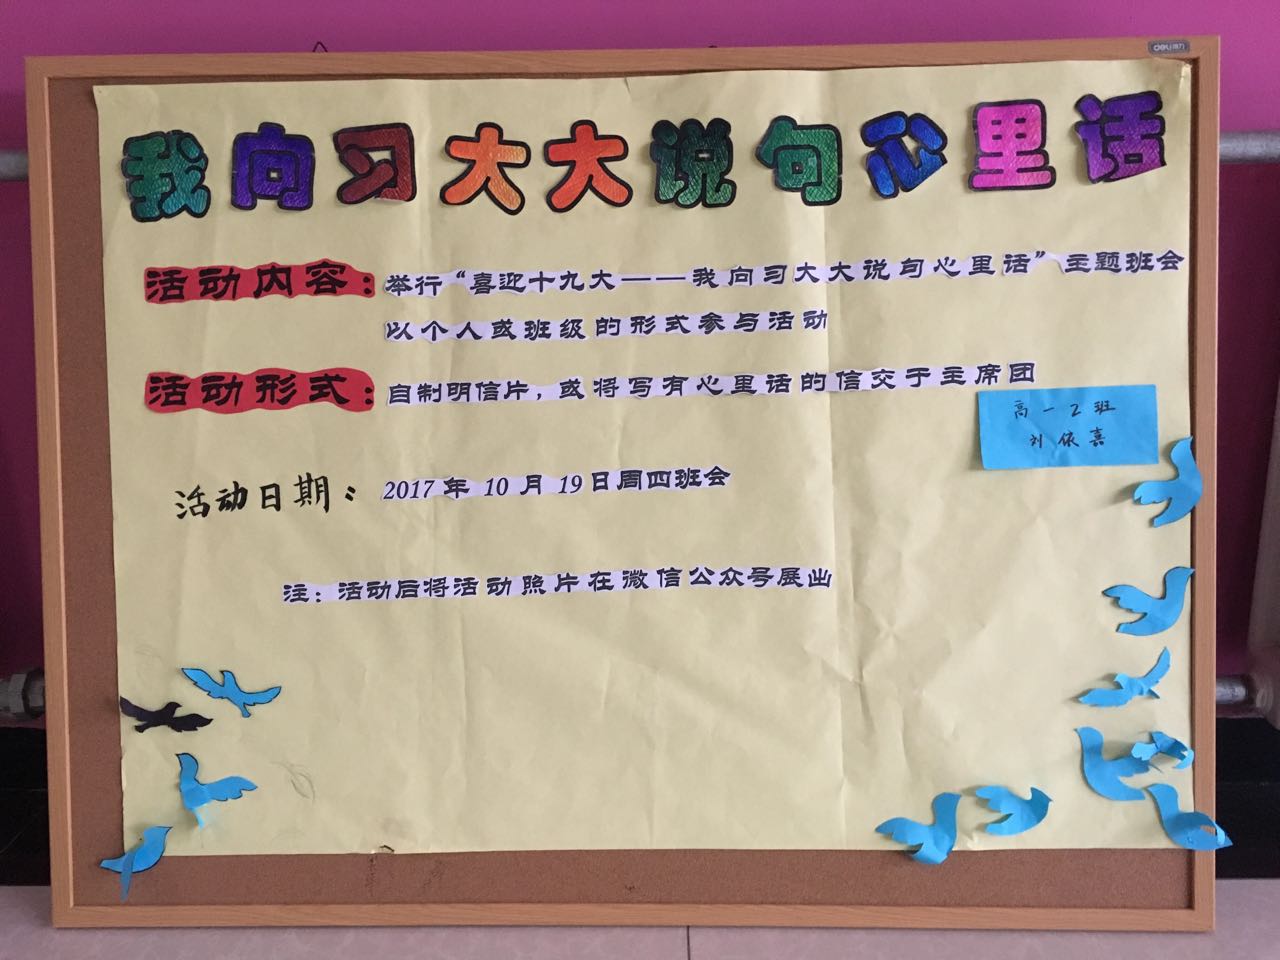 deli得力
我向习大大说句心里话
活动内容：举行“喜迎十九大——我向习大大说句心里话”主题班会
以个人或班级的形式参与活动
活动形式：自制明信片，或将写有心里话的信交于主席团
高一2班
刘依嘉
活动日期：2017年10月19日周四班会
注：活动后将活动照片在微信公众号展出